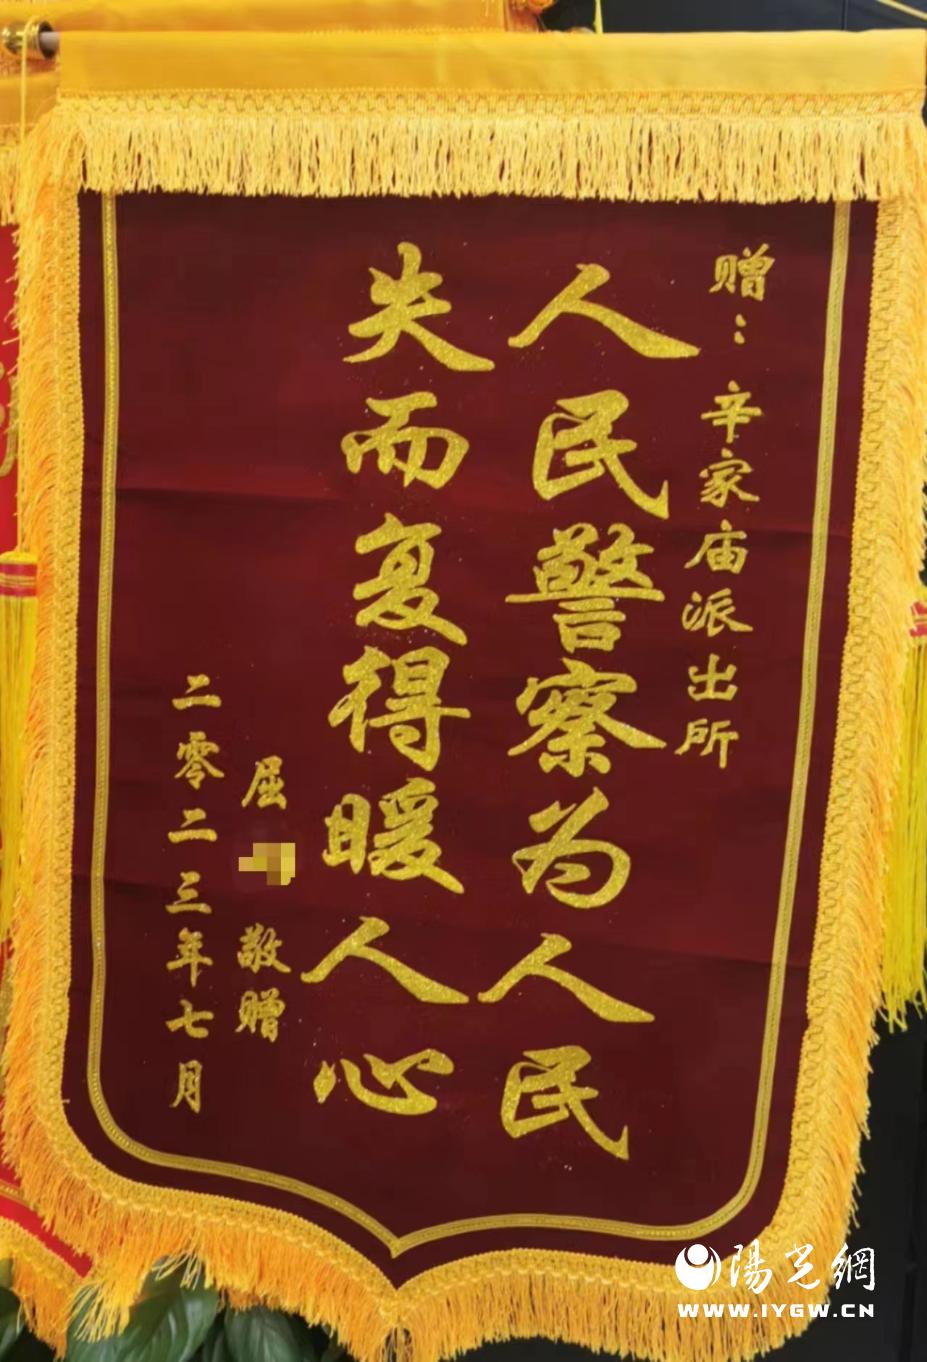 赠：辛家庙派出所
人民警察为人民
失而复得暖人心
屈 敬赠
二零二三年七月
陽光網
WWW.IYGW.CN